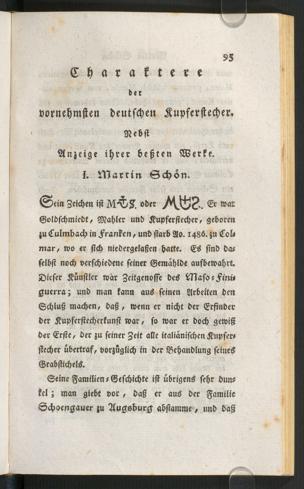 95
Charaktere
der
vornehmsten deutschen Kupferstecher.
Nebst
Anzeige ihrer beßten Werke.
I. Martin Schön.
Sein Zeichen ist M☩S. oder M☩S. Er war
Goldschmiedt, Mahler und Kupferstecher, geboren
zu Culmbach in Franken, und starb Ao. 1486. zu Col-
mar, wo er sich niedergelassen hatte. Es sind da-
selbst noch verschiedene seiner Gemählde aufbewahrt.
Dieser Künstler war Zeitgenosse des Maso-Fini-
guerra; und man kann aus seinen Arbeiten den
Schluß machen, daß, wenn er nicht der Erfinder
der Kupferstecherkunst war, so war er doch gewiß
der Erste, der zu seiner Zeit alle italiänischen Kupfer-
stecher übertraf, vorzüglich in der Behandlung seines
Grabstichels.
Seine Familien-Geschichte ist übrigens sehr dun-
kel; man giebt vor, daß er aus der Familie
Schoengauer zu Augsburg abstamme, und daß